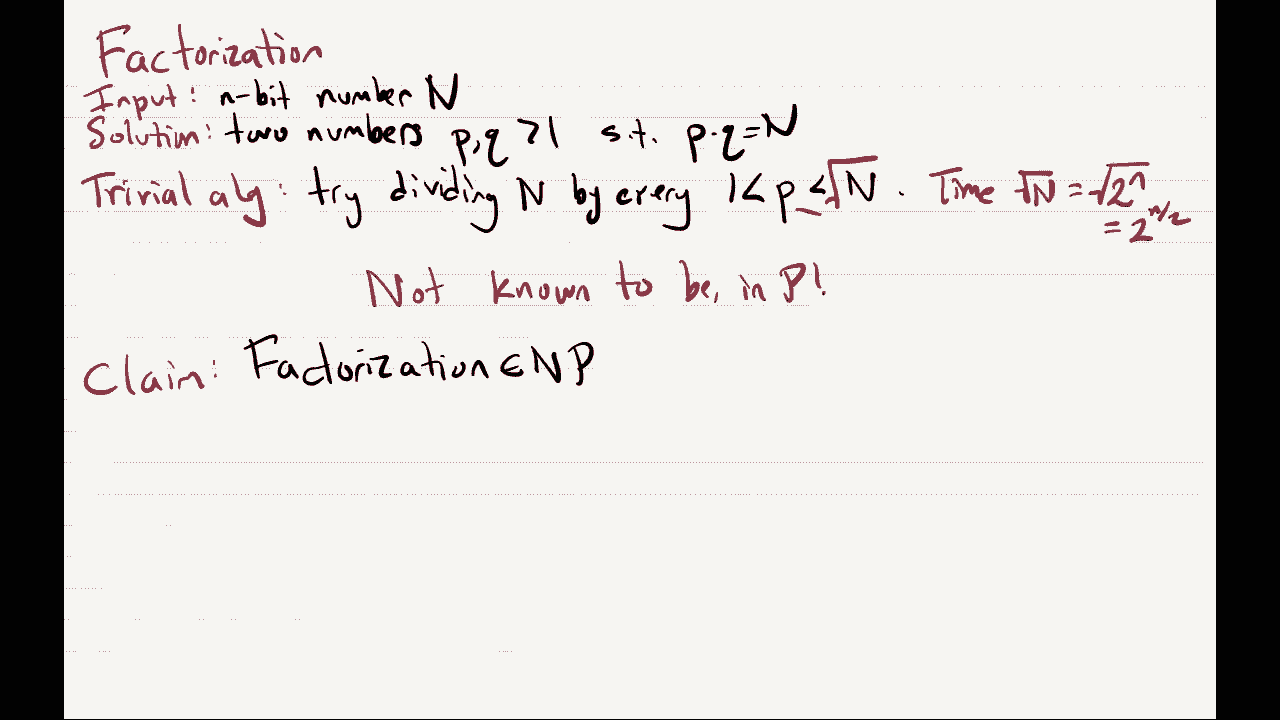 Factorization
Input: n-bit number N
Solution: two numbers p,q >1 s.t. p·q=N
Trivial alg: try dividing N by every 1<p≤√N. Time √N = √2ⁿ
= 2^{n/2}
Not known to be in P!
Claim: Factorization ∈ NP